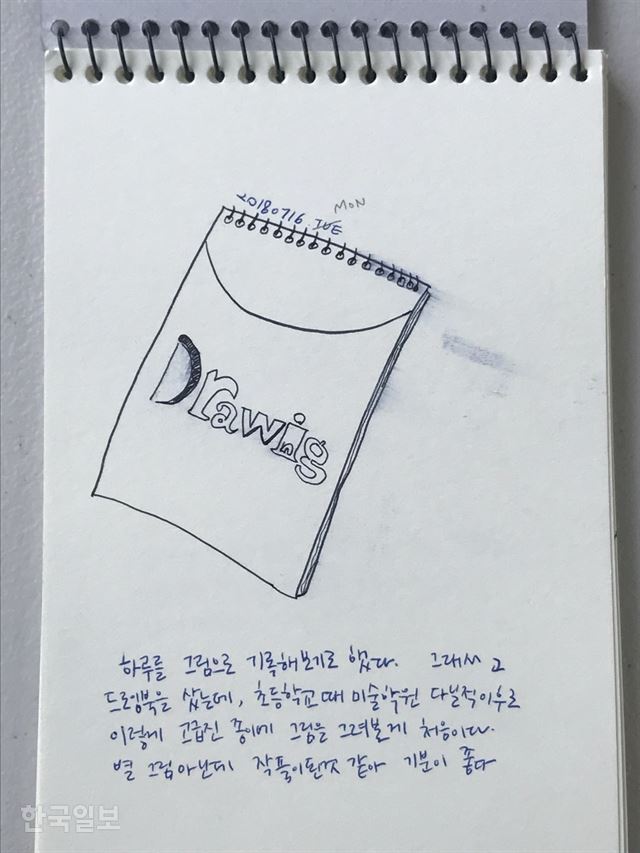 20180716. TUE MON
Drawing
하루를 그림으로 기록해보기로 했다. 그래서 고
드로잉북을 샀는데, 초등학교때 미술학원 다닐적이후로
이렇게 고급진 종이에 그림을 그려볼게 처음이다.
별 그림아닌데 작품이된것 같아 기분이 좋다
한국일보